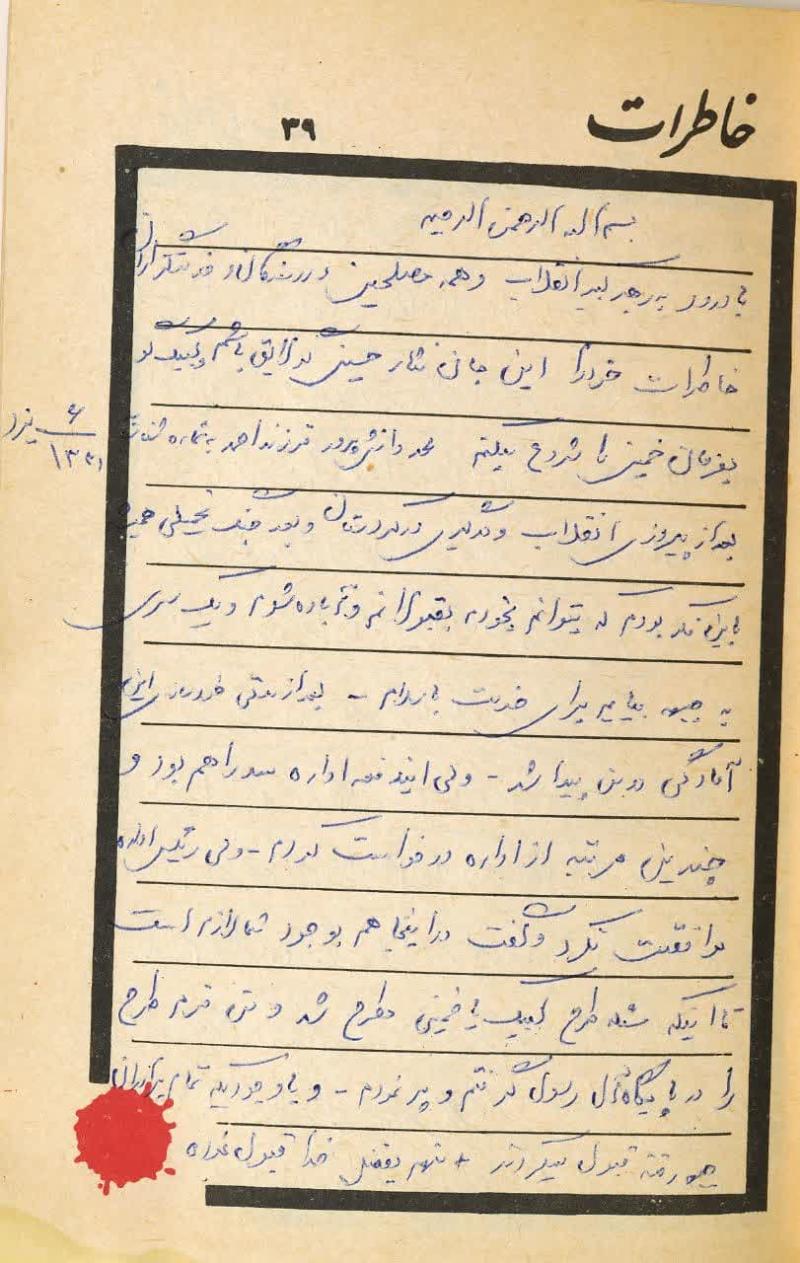 خاطرات
۳۹
بسم الله الرحمن الرحیم
با درود به رهبر کبیر انقلاب و همه مصلحین و رزمندگان و خدمتگزاران
خاطرات خود را این جان نثار حسینی که لایق باشم و لبیک گو
بفرمان خمینی را شروع میکنم محمد دانش پرور فرزند احمد به شماره شناسنامه
۶ یزد
۱۳۳۱
بعد از پیروزی انقلاب و درگیری در کردستان و بعد جنگ تحمیلی همیشه
باین فکر بودم که بتوانم بخودم بقبولانم و آماده شوم و یک سری
به جبهه بیایم برای خدمت باسلام - بعد از مدتی خودسازی این
آمادگی در من پیدا شد - ولی ایندفعه اداره سد راهم بود و
چندین مرتبه از اداره درخواست کردم - ولی رئیس اداره
موافقت نکرد و گفت در اینجا هم بوجود شما لازم است
تا اینکه مسئله طرح لبیک یا خمینی مطرح شد و من فرم طرح
را در پایگاه آل رسول گرفتم و پر نمودم - و با وجودیکه تمام برادران
جبهه رفته قبول میکردند منهم بفضل خدا قبول شده